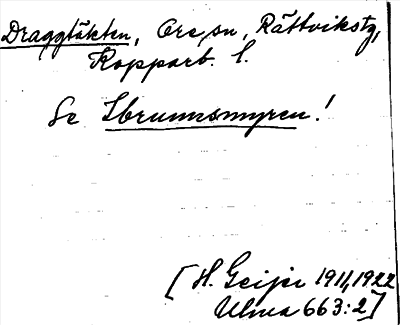 Draggtäkten, Ore sn, Rättvikstg,
Kopparb. l.
Se Ibrunnsmyren!
[H. Geijer 1911, 1922
Ulma 663:2]